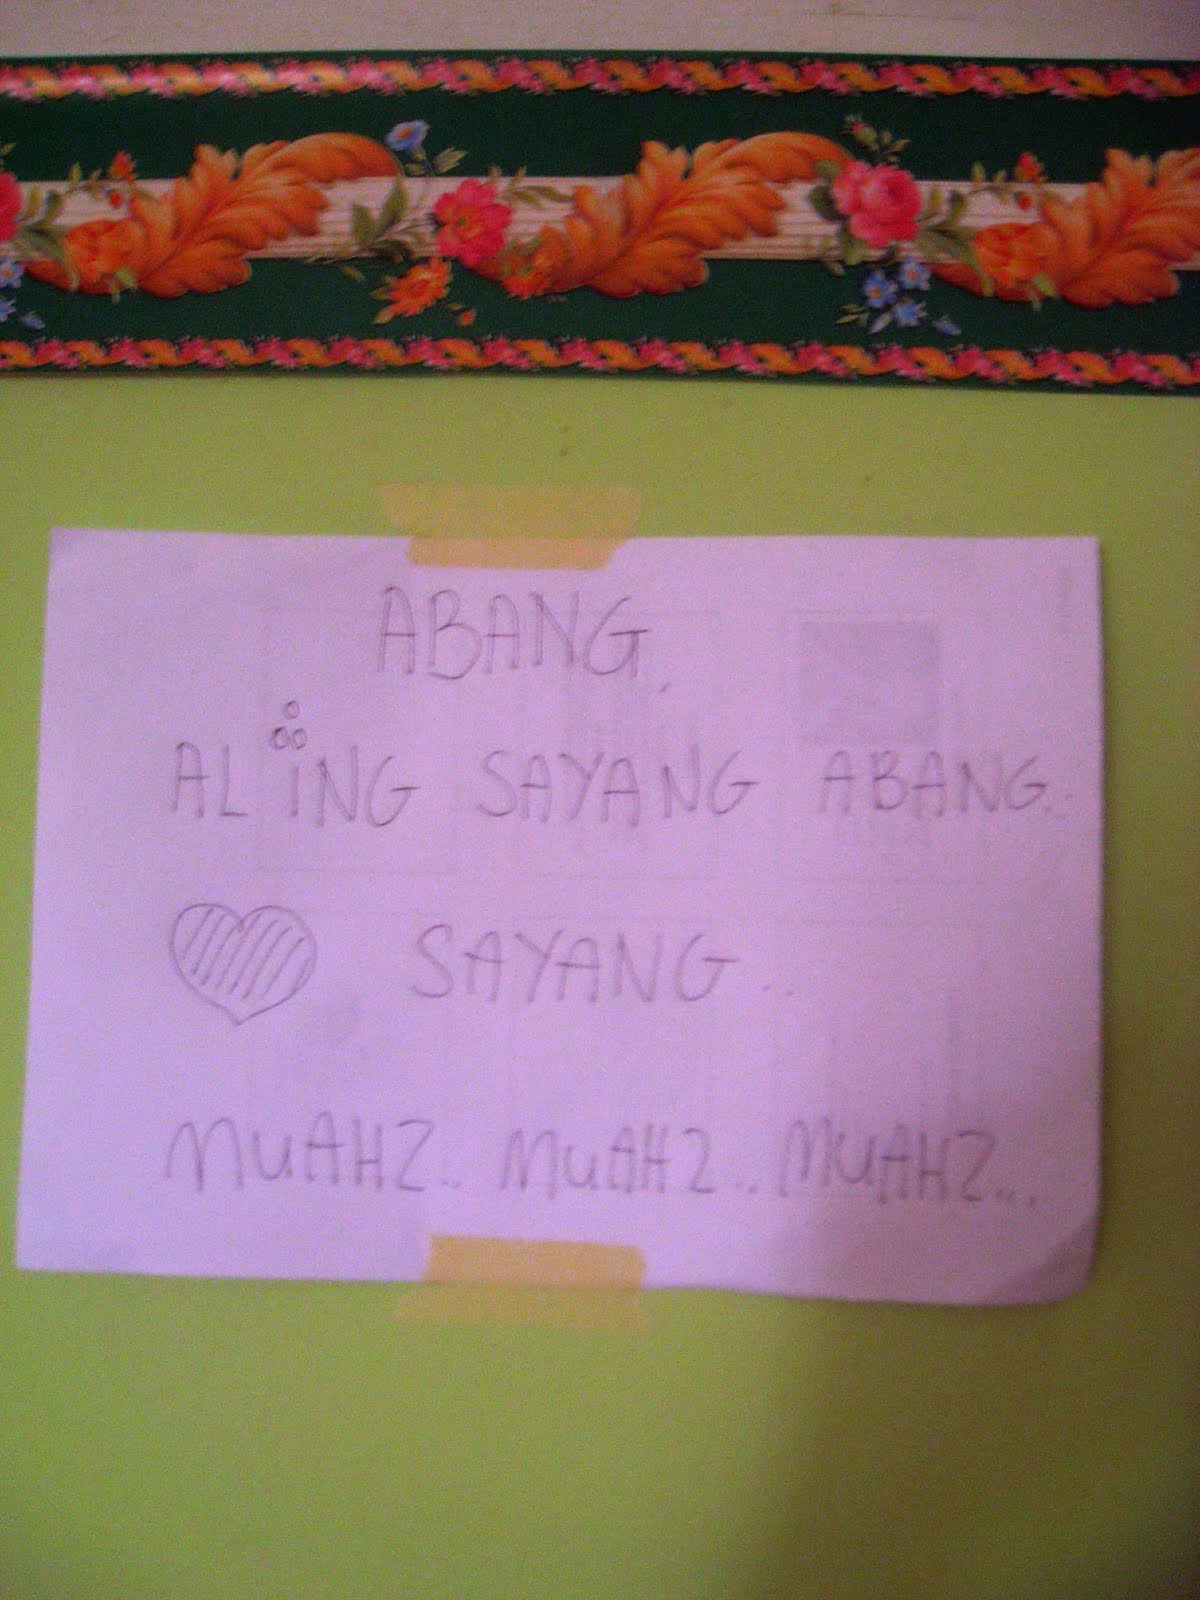 ABANG,
ALING SAYANG ABANG..
SAYANG..
MUAHZ.. MUAHZ.. MUAHZ...